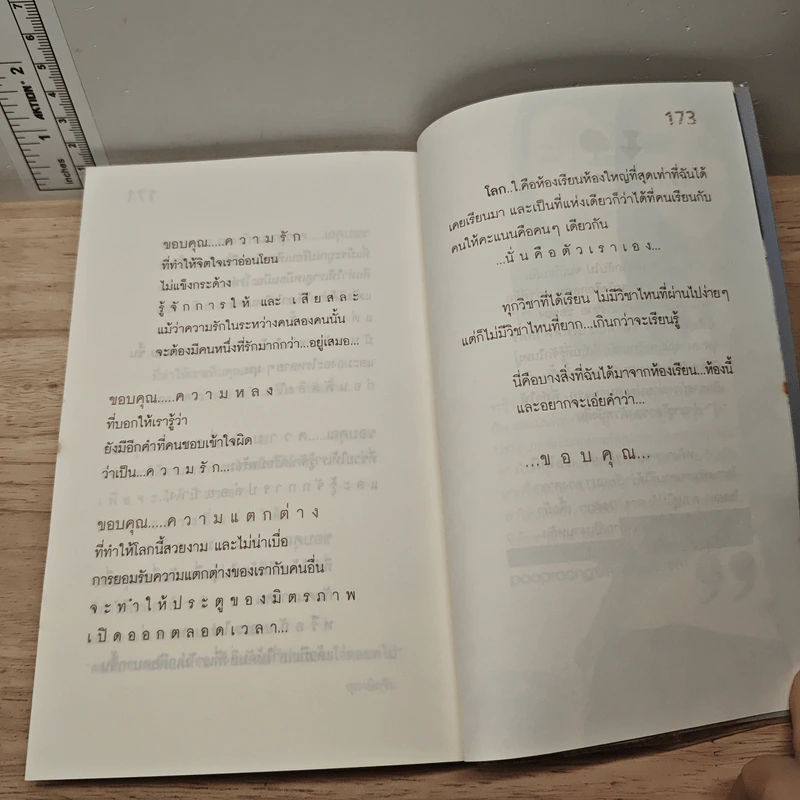 ขอบคุณ.....ค ว า ม รั ก
ที่ทำให้จิตใจเราอ่อนโยน
ไม่แข็งกระด้าง
รู้ จั ก ก า ร ใ ห้ และ เ สี ย ส ล ะ
แม้ว่าความรักในระหว่างคนสองคนนั้น
จะต้องมีคนหนึ่งที่รักมากกว่า...อยู่เสมอ...
ขอบคุณ.....ค ว า ม ห ล ง
ที่บอกให้เรารู้ว่า
ยังมีอีกคำที่คนชอบเข้าใจผิด
ว่าเป็น...ค ว า ม รั ก...
ขอบคุณ.....ค ว า ม แ ต ก ต่ า ง
ที่ทำให้โลกนี้สวยงาม และไม่น่าเบื่อ
การยอมรับความแตกต่างของเรากับคนอื่น
จ ะ ท ำ ใ ห้ ป ร ะ ตู ข อ ง มิ ต ร ภ า พ
เ ปิ ด อ อ ก ต ล อ ด เ ว ล า...
173
โลก..ใ.คือห้องเรียนห้องใหญ่ที่สุดเท่าที่ฉันได้
เคยเรียนมา และเป็นที่แห่งเดียวก็ว่าได้ที่คนเรียนกับ
คนให้คะแนนคือคนๆ เดียวกัน
...นั่ น คื อ ตั ว เ ร า เ อ ง...
ทุกวิชาที่ได้เรียน ไม่มีวิชาไหนที่ผ่านไปง่ายๆ
แต่ก็ไม่มีวิชาไหนที่ยาก...เกินกว่าจะเรียนรู้
นี่คือบางสิ่งที่ฉันได้มาจากห้องเรียน...ห้องนี้
และอยากจะเอ่ยคำว่า...
...ข อ บ คุ ณ...
inches 1 2 AKTION
5 6 7